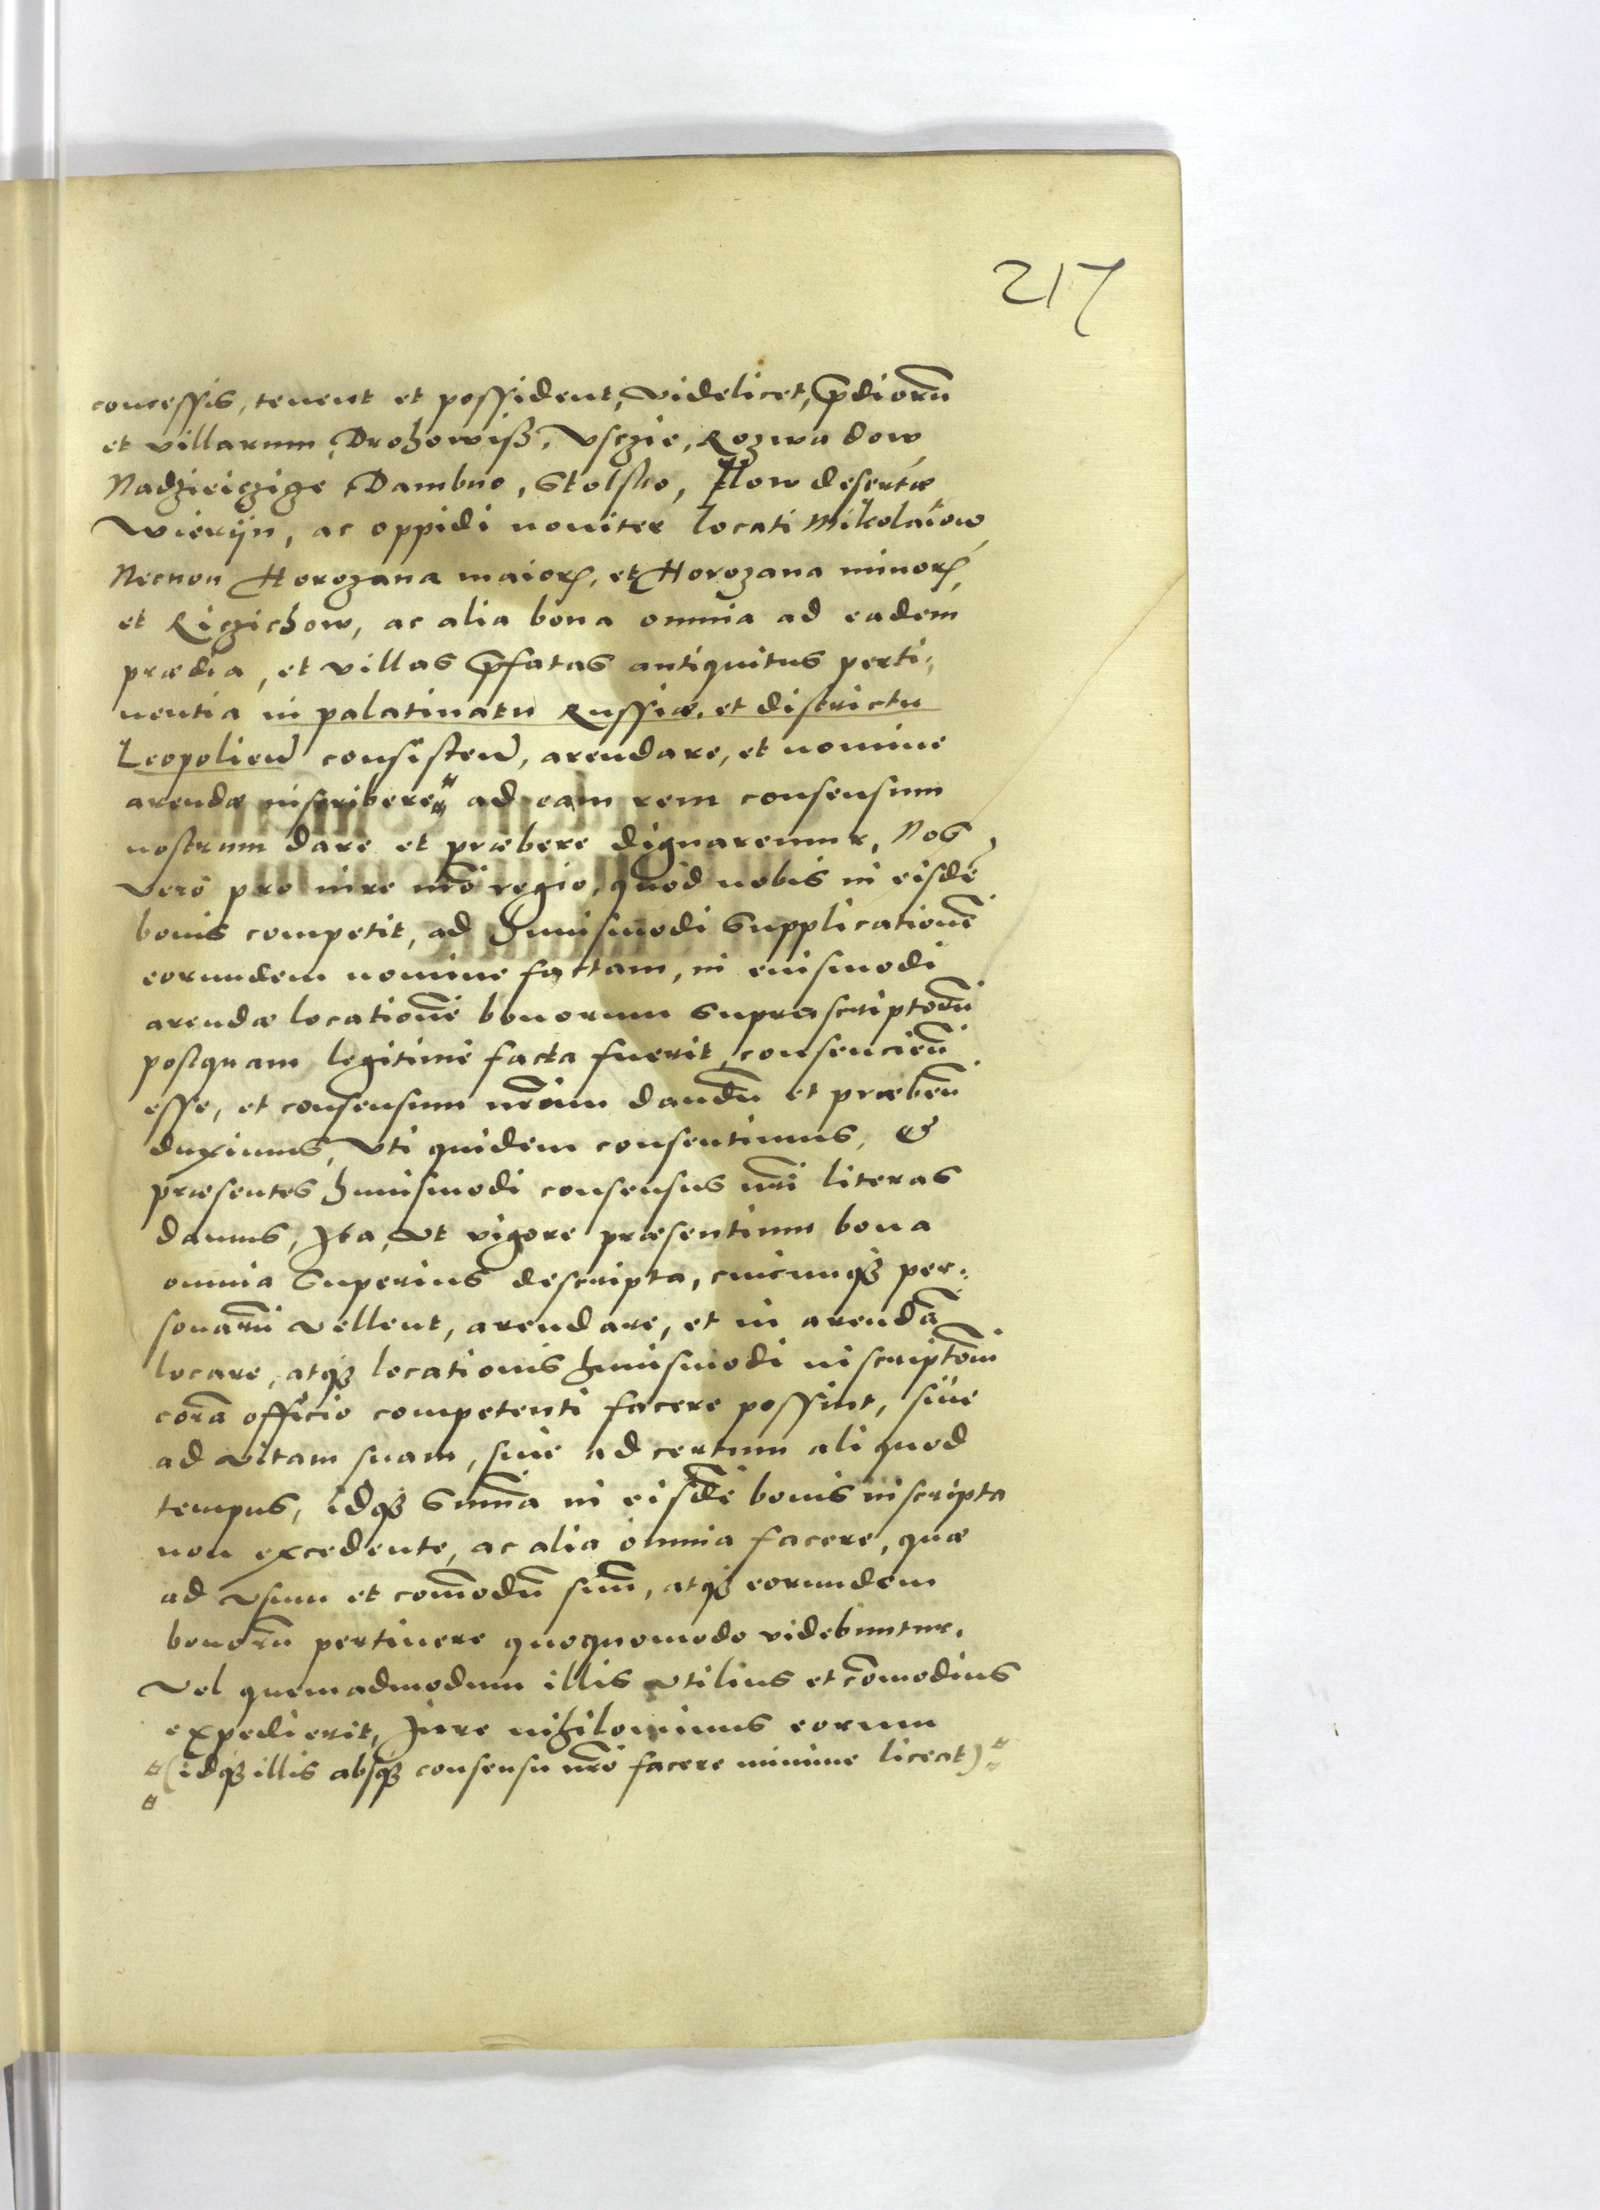 217
concessis, tenent et possident, videlicet, p̄diorū
et villarum, Drohowiß, Vsczie, Rozwadow,
Nadzieiczige Dambno, Stolsko, Ilow desertæ
Wierijn, ac oppidi noviter locati Mikolaiow,
Necnon Horozana maioris, et Horozana minoris,
et Riczichow, ac alia bona omnia ad eadem
prædia, et villas p̄fatas antiquitus perti=
nentia in palatinatu Russiæ, et districtu
Leopolien̄ consisten̄, arendare, et nomine
arendæ inscribere ad eam rem consensum
nostrum dare et præbere dignaremur, Nos
vero pro iure nrō regio, quod nobis in eisdē
bonis competit, ad huiusmodi supplicationē
eorundem nomine factam, in eiusmodi
arendæ locationē bonorum suprascriptorū
posquam legitime facta fuerit, consencien̄
esse, et consensum nrūm dandū et præben̄
duximus, Vti quidem consentimus, &
præsentes huiusmodi consensus nrī literas
damus, Ita, vt vigore præsentium bona
omnia superius descripta, cuicunqȝ per=
sonarū vellent, arendare, et in arendā
locare, atqȝ locationis huiusmodi inscriptōm
corā officio competenti facere possint, siue
ad vitam suam, siue ad certum aliquod
tempus, idqȝ sum̄a in eisdē bonis inscripta
non excedente, ac alia omnia facere, quæ
ad vsum et com̄odū suū, atqȝ eorundem
bonorū pertinere quoquomodo videbuntur,
Vel quemadmodum illis vtilius et cōmodius
expedierit, Jure nihilominus eorum
(idqȝ illis absqȝ consensu nrō facere minime liceat)